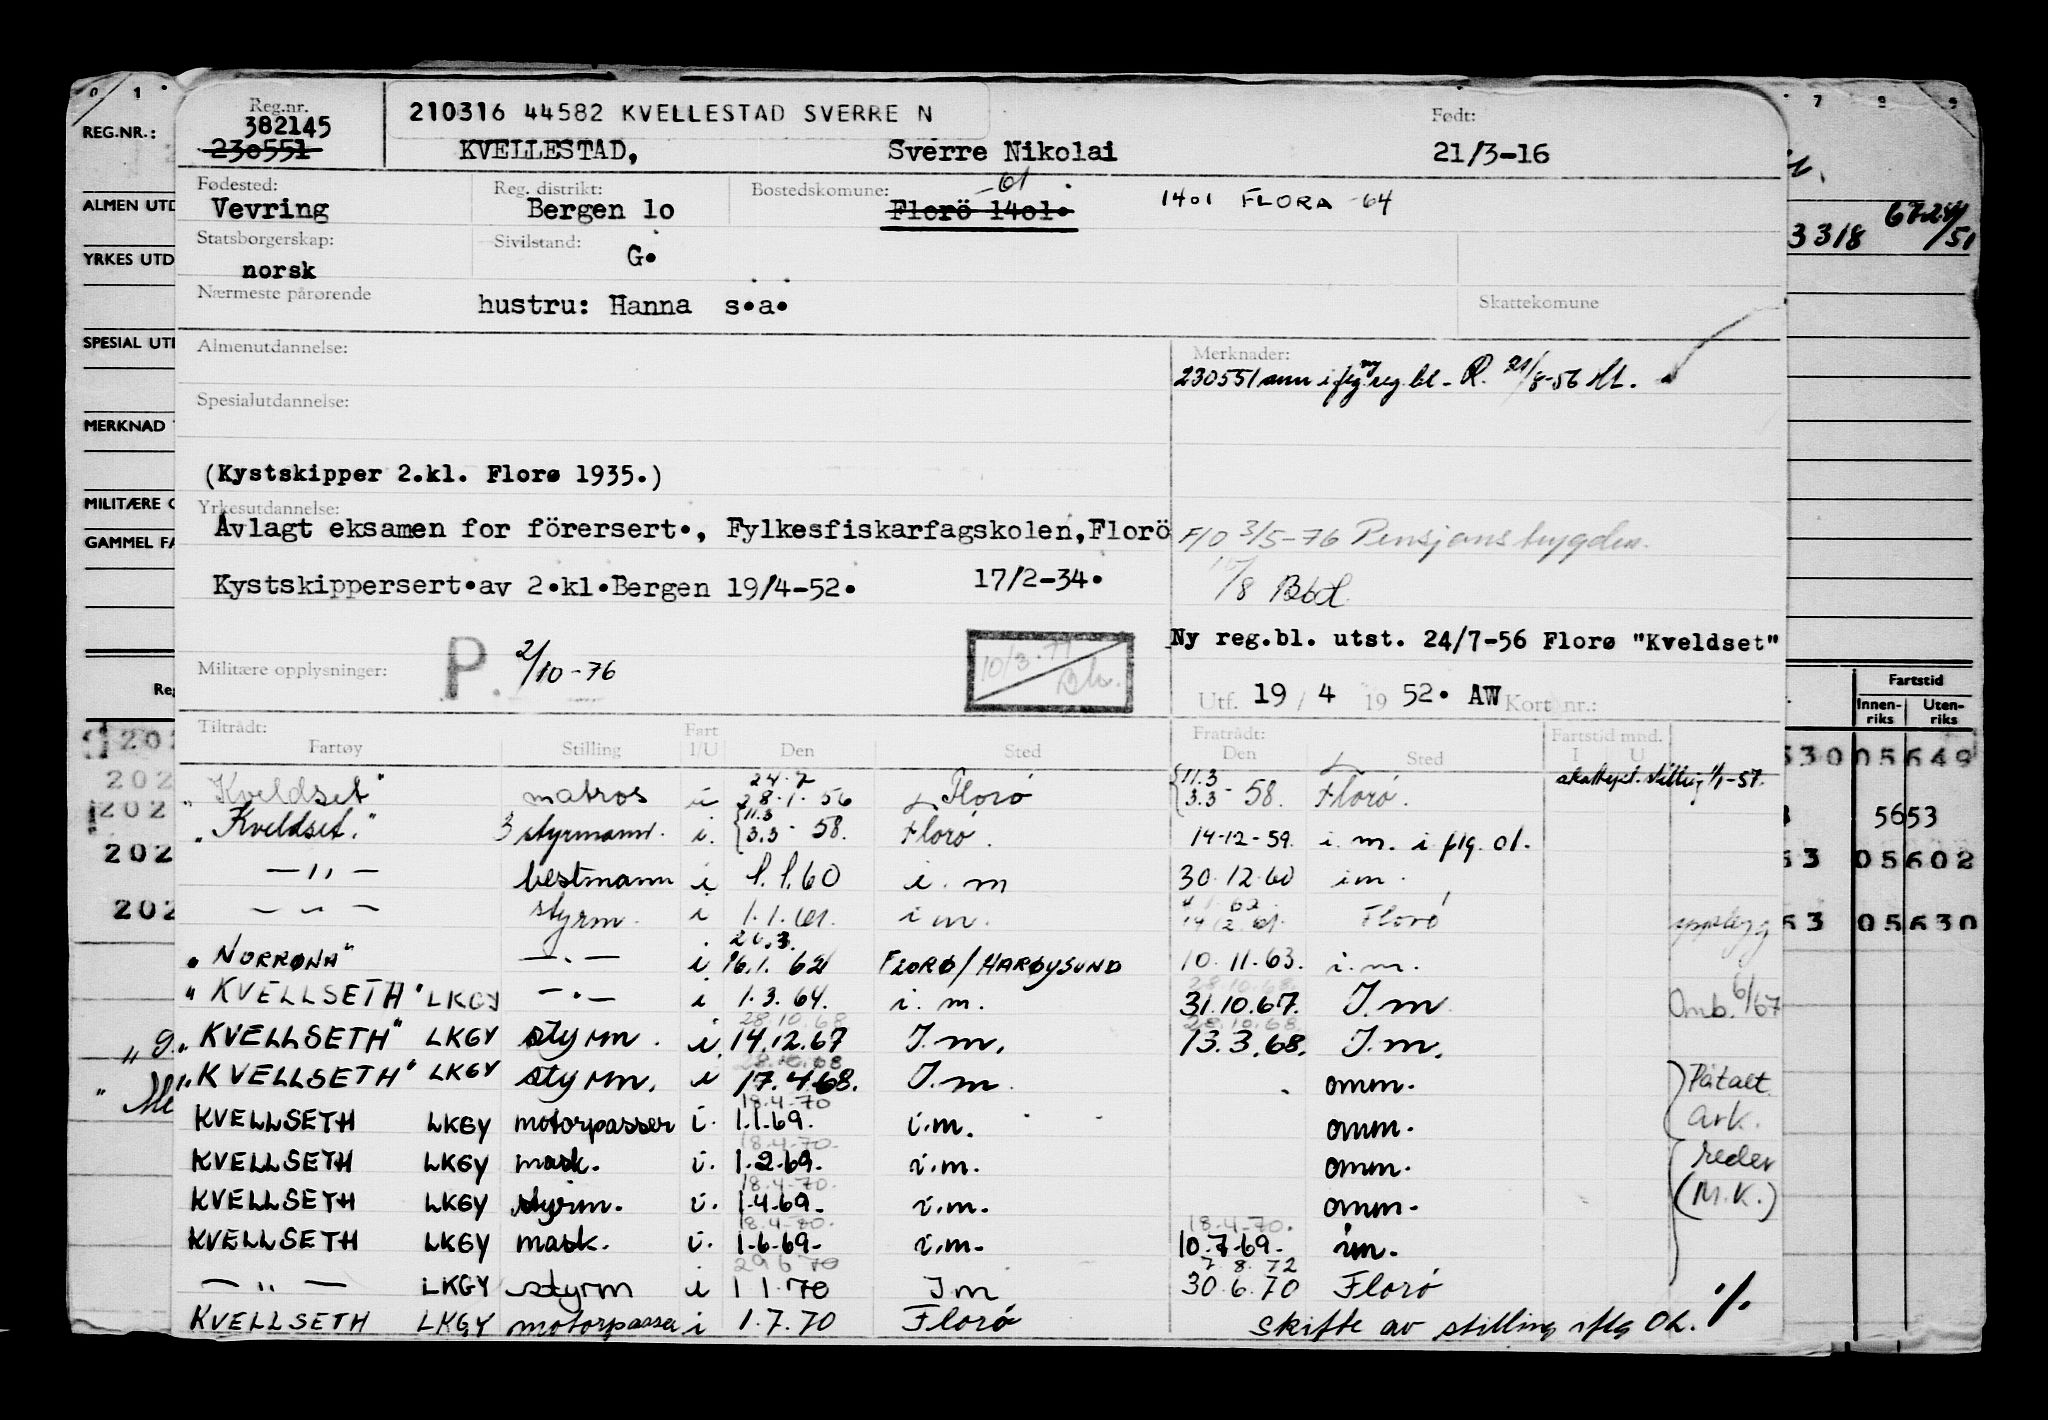 0 1 7 8 9
REG.NR.:
ALMEN UTD
YRKES UTD
SPESIAL UTD
MERKNAD
MILITÆRE O
GAMMEL FA
Reg.nr.
382145
230551
210316 44582 KVELLESTAD SVERRE N
KVELLESTAD, Sverre Nikolai
Født:
21/3-16
Fødested:
Vevring
Reg. distrikt:
Bergen 1o
Bostedskomune:
-61
Florö 14o1.
1401 FLORA -64
3318 /51
Statsborgerskap:
norsk
Sivilstand:
G.
Nærmeste pårørende
hustru: Hanna s.a.
Skattekomune
Almenutdannelse:
Merknader:
230551 ann iflg ny reg.bl. R. 21/8-56
Spesialutdannelse:
(Kystskipper 2.kl. Florø 1935.)
Yrkesutdannelse:
Avlagt eksamen for förersert., Fylkesfiskarfagskolen, Florö
17/2-34.
Kystskippersert.av 2.kl.Bergen 19/4-52.
F/O 3/5-76 Pensjonstrygden.
10/8
Ny reg.bl. utst. 24/7-56 Florø "Kveldset"
Militære opplysninger:
P. 2/10-76
10/3-77
Utf. 19 / 4 19 52. AW Kort nr.:
Fartstid
Innenriks Utenriks
Tiltrådt:
Fartøy Stilling Fart I/U Den Sted
Fratrådt:
Den Sted
Fartstid mnd.
I U
"Kveldset" matros i 24.7 28.1.56 Florö {11.3 3.3-58. Florö.
"Kveldset." 3 styrmann. i. {11.3 3.3-58. Florö. 14-12-59. i.m. i flg. ol.
— " — bestmann i 1.1.60 i.m 30.12.60 im.
— " — styrm. i 1.1.61. im. Florö
"NORRØNA" — " — i 20.3. 16.1.62 FLORØ/HARØYSUND 10.11.63. i.m.
"KVELLSETH" LKGY — " — i 1.3.64. i.m. 28.10.68. 31.10.67. I.m Omb. 6/67
"KVELLSETH" LKGY styrm. i 28.10.68 14.12.67 I.m. 28.10.68. 13.3.68. I.m.
"KVELLSETH" LKGY styrm. i 28.10.68 17.4.68. I.m. omm.
KVELLSETH LKGY motorpasser i. 18.4-70 1.1.69. i.m. omm.
KVELLSETH LKGY mask. i. 18.4-70. 1.2.69. i.m. omm.
KVELLSETH LKGY styrm. i. 18.4-70. 1.4.69. i.m. omm.
KVELLSETH LKGY mask. i. 18.4-70. 1.6.69. i.m. 18.4-70. 10.7.69. im.
Påtalt
ark.
reder
(M.K.)
— " — LKGY styrm i 29 6 70 1 1.70 I m 7.8.72 30.6.70 Florö
KVELLSETH LKGY motorpasser i 1.7.70 Florö skifte av stilling iflg OL. %
330 05649
5653
53 05602
53 05630
202
202
202
202
202